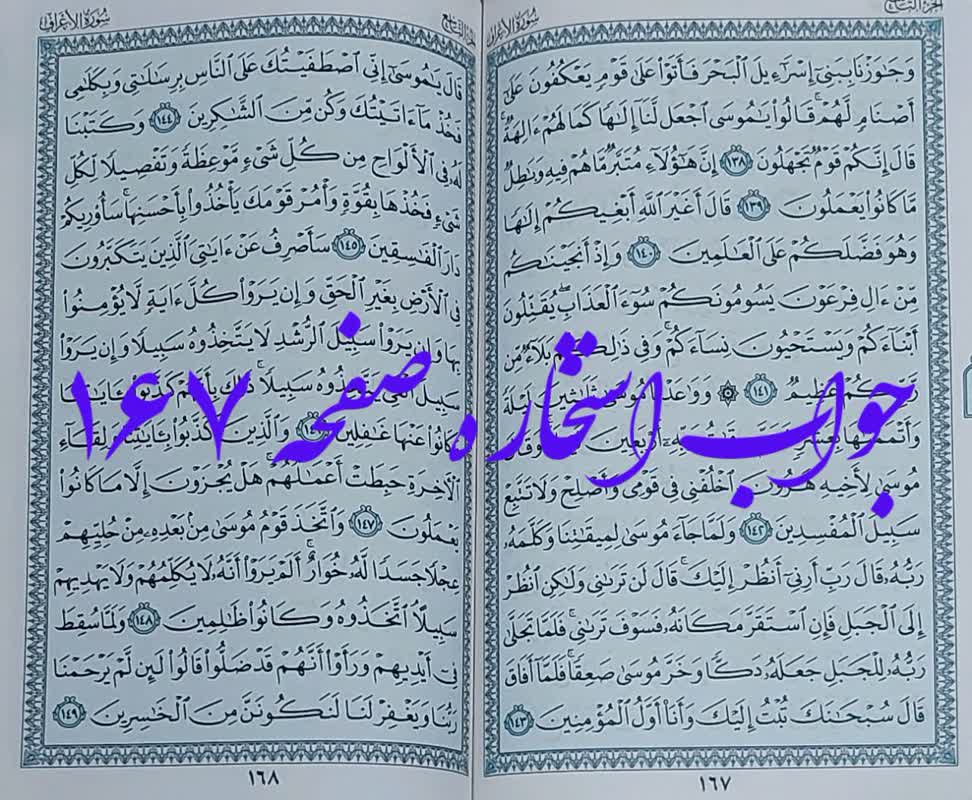 الجزء التاسع
سورة الأعراف
وَجَٰوَزْنَا بِبَنِىٓ إِسْرَٰٓءِيلَ ٱلْبَحْرَ فَأَتَوْا۟ عَلَىٰ قَوْمٍ يَعْكُفُونَ عَلَىٰٓ
أَصْنَامٍ لَّهُمْ ۚ قَالُوا۟ يَٰمُوسَى ٱجْعَل لَّنَآ إِلَٰهًا كَمَا لَهُمْ ءَالِهَةٌ ۚ
قَالَ إِنَّكُمْ قَوْمٌ تَجْهَلُونَ ١٣٨ إِنَّ هَٰٓؤُلَآءِ مُتَبَّرٌ مَّا هُمْ فِيهِ وَبَٰطِلٌ
مَّا كَانُوا۟ يَعْمَلُونَ ١٣٩ قَالَ أَغَيْرَ ٱللَّهِ أَبْغِيكُمْ إِلَٰهًا
وَهُوَ فَضَّلَكُمْ عَلَى ٱلْعَٰلَمِينَ ١٤٠ وَإِذْ أَنجَيْنَٰكُم
مِّنْ ءَالِ فِرْعَوْنَ يَسُومُونَكُمْ سُوٓءَ ٱلْعَذَابِ ۖ يُقَتِّلُونَ
أَبْنَآءَكُمْ وَيَسْتَحْيُونَ نِسَآءَكُمْ ۚ وَفِى ذَٰلِكُم بَلَآءٌ مِّن
رَّبِّكُمْ عَظِيمٌ ١٤١ ۞ وَوَٰعَدْنَا مُوسَىٰ ثَلَٰثِينَ لَيْلَةً
وَأَتْمَمْنَٰهَا بِعَشْرٍ أَرْبَعِينَ وَقَالَ
مُوسَىٰ لِأَخِيهِ هَٰرُونَ ٱخْلُفْنِى فِى قَوْمِى وَأَصْلِحْ وَلَا تَتَّبِعْ
سَبِيلَ ٱلْمُفْسِدِينَ ١٤٢ وَلَمَّا جَآءَ مُوسَىٰ لِمِيقَٰتِنَا وَكَلَّمَهُۥ
رَبُّهُۥ قَالَ رَبِّ أَرِنِىٓ أَنظُرْ إِلَيْكَ ۚ قَالَ لَن تَرَىٰنِى وَلَٰكِنِ ٱنظُرْ
إِلَى ٱلْجَبَلِ فَإِنِ ٱسْتَقَرَّ مَكَانَهُۥ فَسَوْفَ تَرَىٰنِى ۚ فَلَمَّا تَجَلَّىٰ
رَبُّهُۥ لِلْجَبَلِ جَعَلَهُۥ دَكًّا وَخَرَّ مُوسَىٰ صَعِقًا ۚ فَلَمَّآ أَفَاقَ
قَالَ سُبْحَٰنَكَ تُبْتُ إِلَيْكَ وَأَنَا۠ أَوَّلُ ٱلْمُؤْمِنِينَ ١٤٣
١٦٧
سورة الأعراف
قَالَ يَٰمُوسَىٰٓ إِنِّى ٱصْطَفَيْتُكَ عَلَى ٱلنَّاسِ بِرِسَٰلَٰتِى وَبِكَلَٰمِى
فَخُذْ مَآ ءَاتَيْتُكَ وَكُن مِّنَ ٱلشَّٰكِرِينَ ١٤٤ وَكَتَبْنَا
لَهُۥ فِى ٱلْأَلْوَاحِ مِن كُلِّ شَىْءٍ مَّوْعِظَةً وَتَفْصِيلًا لِّكُلِّ
شَىْءٍ فَخُذْهَا بِقُوَّةٍ وَأْمُرْ قَوْمَكَ يَأْخُذُوا۟ بِأَحْسَنِهَا ۚ سَأُو۟رِيكُمْ
دَارَ ٱلْفَٰسِقِينَ ١٤٥ سَأَصْرِفُ عَنْ ءَايَٰتِىَ ٱلَّذِينَ يَتَكَبَّرُونَ
فِى ٱلْأَرْضِ بِغَيْرِ ٱلْحَقِّ وَإِن يَرَوْا۟ كُلَّ ءَايَةٍ لَّا يُؤْمِنُوا۟
بِهَا وَإِن يَرَوْا۟ سَبِيلَ ٱلرُّشْدِ لَا يَتَّخِذُوهُ سَبِيلًا وَإِن يَرَوْا۟
سَبِيلَ ٱلْغَىِّ يَتَّخِذُوهُ سَبِيلًا ۚ ذَٰلِكَ بِأَنَّهُمْ كَذَّبُوا۟ بِـَٔايَٰتِنَا
وَكَانُوا۟ عَنْهَا غَٰفِلِينَ ١٤٦ وَٱلَّذِينَ كَذَّبُوا۟ بِـَٔايَٰتِنَا وَلِقَآءِ
ٱلْـَٔاخِرَةِ حَبِطَتْ أَعْمَٰلُهُمْ ۚ هَلْ يُجْزَوْنَ إِلَّا مَا كَانُوا۟
يَعْمَلُونَ ١٤٧ وَٱتَّخَذَ قَوْمُ مُوسَىٰ مِنۢ بَعْدِهِۦ مِنْ حُلِيِّهِمْ
عِجْلًا جَسَدًا لَّهُۥ خُوَارٌ ۚ أَلَمْ يَرَوْا۟ أَنَّهُۥ لَا يُكَلِّمُهُمْ وَلَا يَهْدِيهِمْ
سَبِيلًا ۘ ٱتَّخَذُوهُ وَكَانُوا۟ ظَٰلِمِينَ ١٤٨ وَلَمَّا سُقِطَ
فِىٓ أَيْدِيهِمْ وَرَأَوْا۟ أَنَّهُمْ قَدْ ضَلُّوا۟ قَالُوا۟ لَئِن لَّمْ يَرْحَمْنَا
رَبُّنَا وَيَغْفِرْ لَنَا لَنَكُونَنَّ مِنَ ٱلْخَٰسِرِينَ ١٤٩
١٦٨
جواب استخاره صفحه ۱۶۷